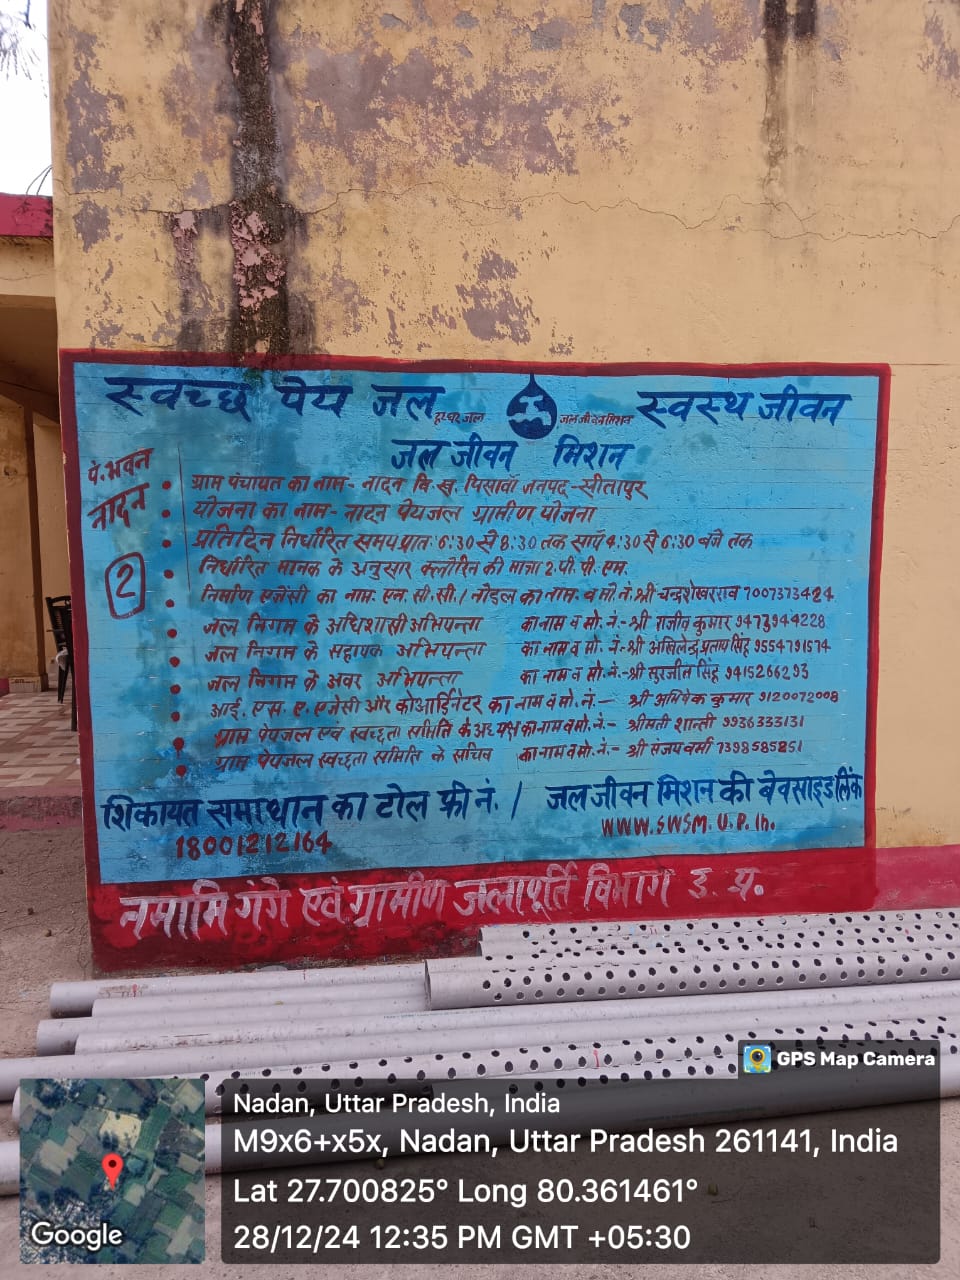 स्वच्छ पेय जल हर घर जल जल जीवन मिशन स्वस्थ जीवन
जल जीवन मिशन
पं. भवन
नादन
2
ग्राम पंचायत का नाम- नादन वि.ख. पिसावां जनपद-सीतापुर
योजना का नाम- नादन पेयजल ग्रामीण योजना
प्रतिदिन निर्धारित समय प्रात: 6:30 से 8:30 तक सायं 4:30 से 6:30 बजे तक
निर्धारित मानक के अनुसार क्लोरिन की मात्रा 2 पी. पी. एम.
निर्माण एजेंसी का नाम. एन. सी. सी. / नोडल का नाम. व मो. नं. श्री चन्द्रशेखरराव 7007373424
जल निगम के अधिशासी अभियन्ता का नाम व मो. नं.- श्री राजीव कुमार 9473944228
जल निगम के सहायक अभियन्ता का नाम व मो. नं.-श्री अखिलेन्द्र प्रताप सिंह 9554791574
जल निगम के अवर अभियन्ता का नाम व मो. नं.-श्री सुरजीत सिंह 9415266293
आई. एस. ए. एजेंसी और कोआर्डिनेटर का नाम व मो. नं.- श्री अभिषेक कुमार 9120072008
ग्राम पेयजल एवं स्वच्छता समिति के अध्यक्ष का नाम व मो. नं.- श्रीमती शान्ती 9936333131
ग्राम पेयजल स्वच्छता समिति के सचिव का नाम व मो. नं.- श्री संजय वर्मा 7398585851
शिकायत समाधान का टोल फ्री नं. / जल जीवन मिशन की बेवसाइड लिंक
18001212164 www.swsm.U.P.In.
नमामि गंगे एवं ग्रामीण जलापूर्ति विभाग उ. प्र.
GPS Map Camera
Nadan, Uttar Pradesh, India
M9x6+x5x, Nadan, Uttar Pradesh 261141, India
Lat 27.700825° Long 80.361461°
28/12/24 12:35 PM GMT +05:30
Google